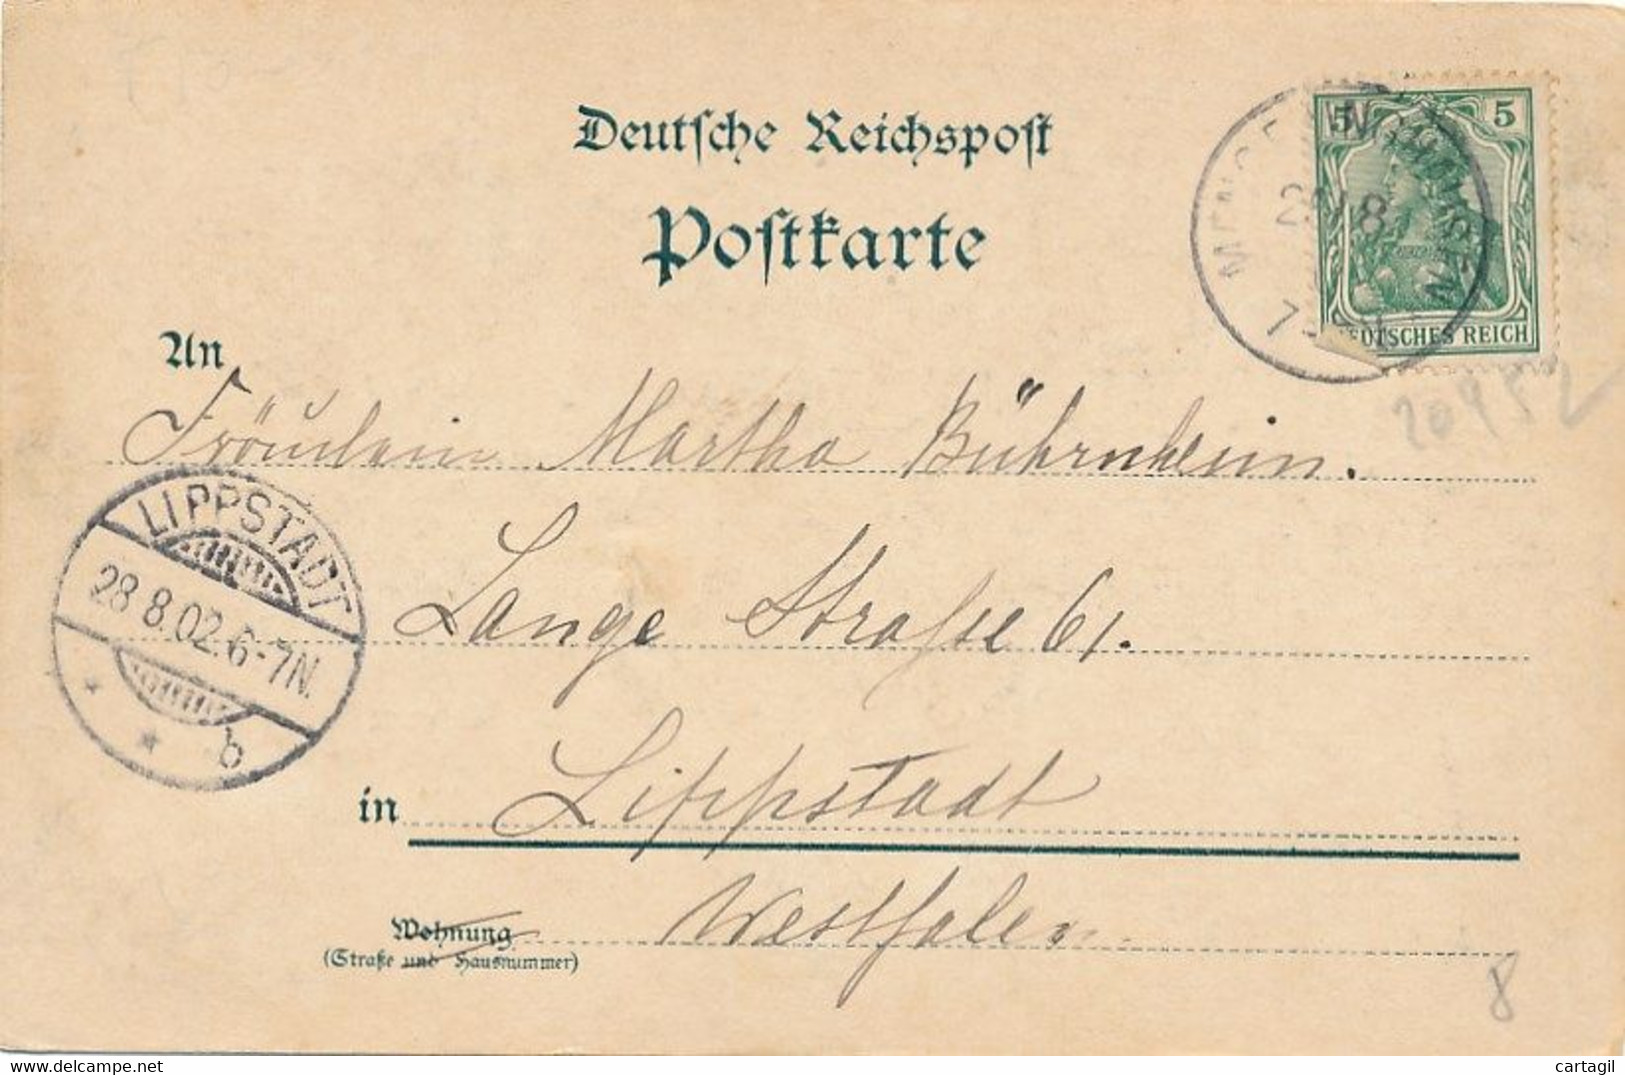 Deutsche Reichspost
Postkarte
5 5
DEUTSCHES REICH
7-
20952
An
Fräulein Martha Bührnheim.
LIPPSTADT
28.8.02.6-7N.
* * b
Lange Straße 61.
in Lippstadt
Westfalen
Wohnung
(Straße und Hausnummer)
8
cartagil